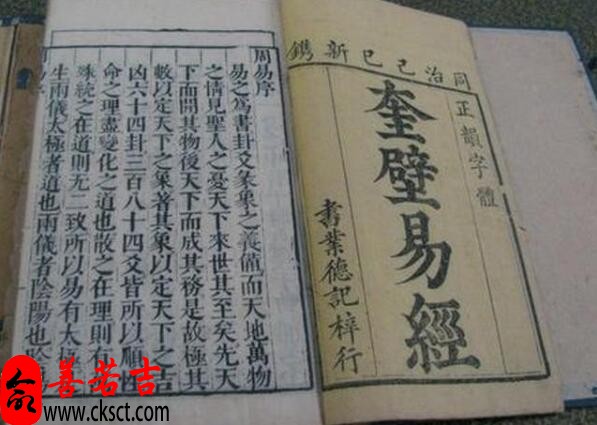 同治己巳新鐫
正韻字體
奎壁易經
書業德記梓行
周易序
易之爲書卦爻彖象之義備而天地萬物
之情見聖人之憂天下來世其至矣先天
下而開其物後天下而成其務是故極其
數以定天下之象著其象以定天下之吉
凶六十四卦三百八十四爻皆所以順性
命之理盡變化之道也散之在理則有
殊統之在道則无二致所以易有太
生兩儀太極者道也兩儀者陰陽也
善若吉
www.cksct.com